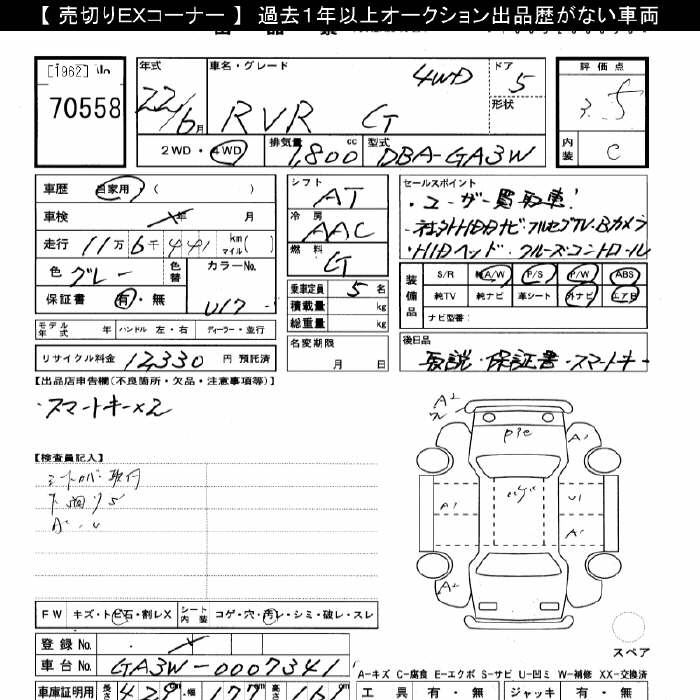 【 売切りEXコーナー 】 過去1年以上オークション出品歴がない車両
[1962]
70558
年式
22/6月
車名・グレード
RVR G 4WD
ドア
5
形状
評価点
3.5
2WD・4WD
排気量
1,800cc
型式
DBA-GA3W
内装
C
車歴 自家用 ( )
車検 年 月
走行 11万6千441 km マイル( )
色 グレー 色替 カラーNo. U17
保証書 有・無
モデル年式 年 ハンドル 左・右 ディーラー・並行
リサイクル料金 12,330 円 預託済
シフト AT
冷房 AAC
燃料 G
乗車定員 5 名
積載量 kg
総重量 kg
名変期限
月 日
セールスポイント
・ユーザー買取車!
・社外HDDナビ・フルセグTV・Bカメラ
・HIDヘッド・クルーズコントロール
装備品
S/R 純A/W P/S P/W ABS
純TV 純ナビ 革シート 外ナビ エアB
ナビ型番:
後日品
取説・保証書・スマートキー
【出品店申告欄(不良箇所・欠品・注意事項等)】
・スマートキー×2
【検査員記入】
シートカバー取付
A2
A1
A1
U1
A1
A2
FW キズ・ト・E石・割レX シート内装 コゲ・穴・汚レ・シミ・破レ・スレ
登録 No.
車台 No. GA3W-0007341
車庫証明用 長さ 429 幅 177 高さ 161
スペア
A-キズ C-腐食 E-エクボ S-サビ U-凹ミ W-補修 XX-交換済
工具 有・無 ジャッキ 有・無